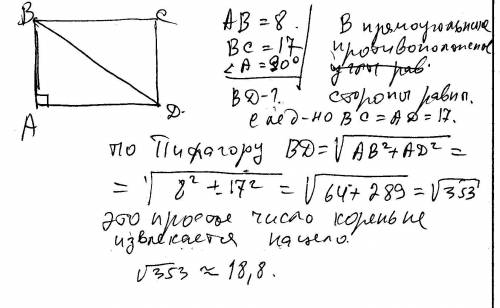 B
C
A
D
AB = 8.
BC = 17
∠A = 90°
BD - ?
В прямоугольнике
противоположные
углы рав.
стороны равн.
след-но BC = AD = 17.
по Пифагору BD = √AB² + AD² =
= √8² + 17² = √64 + 289 = √353
это простое число корень не
извлекается нацело.
√353 ≈ 18,8.